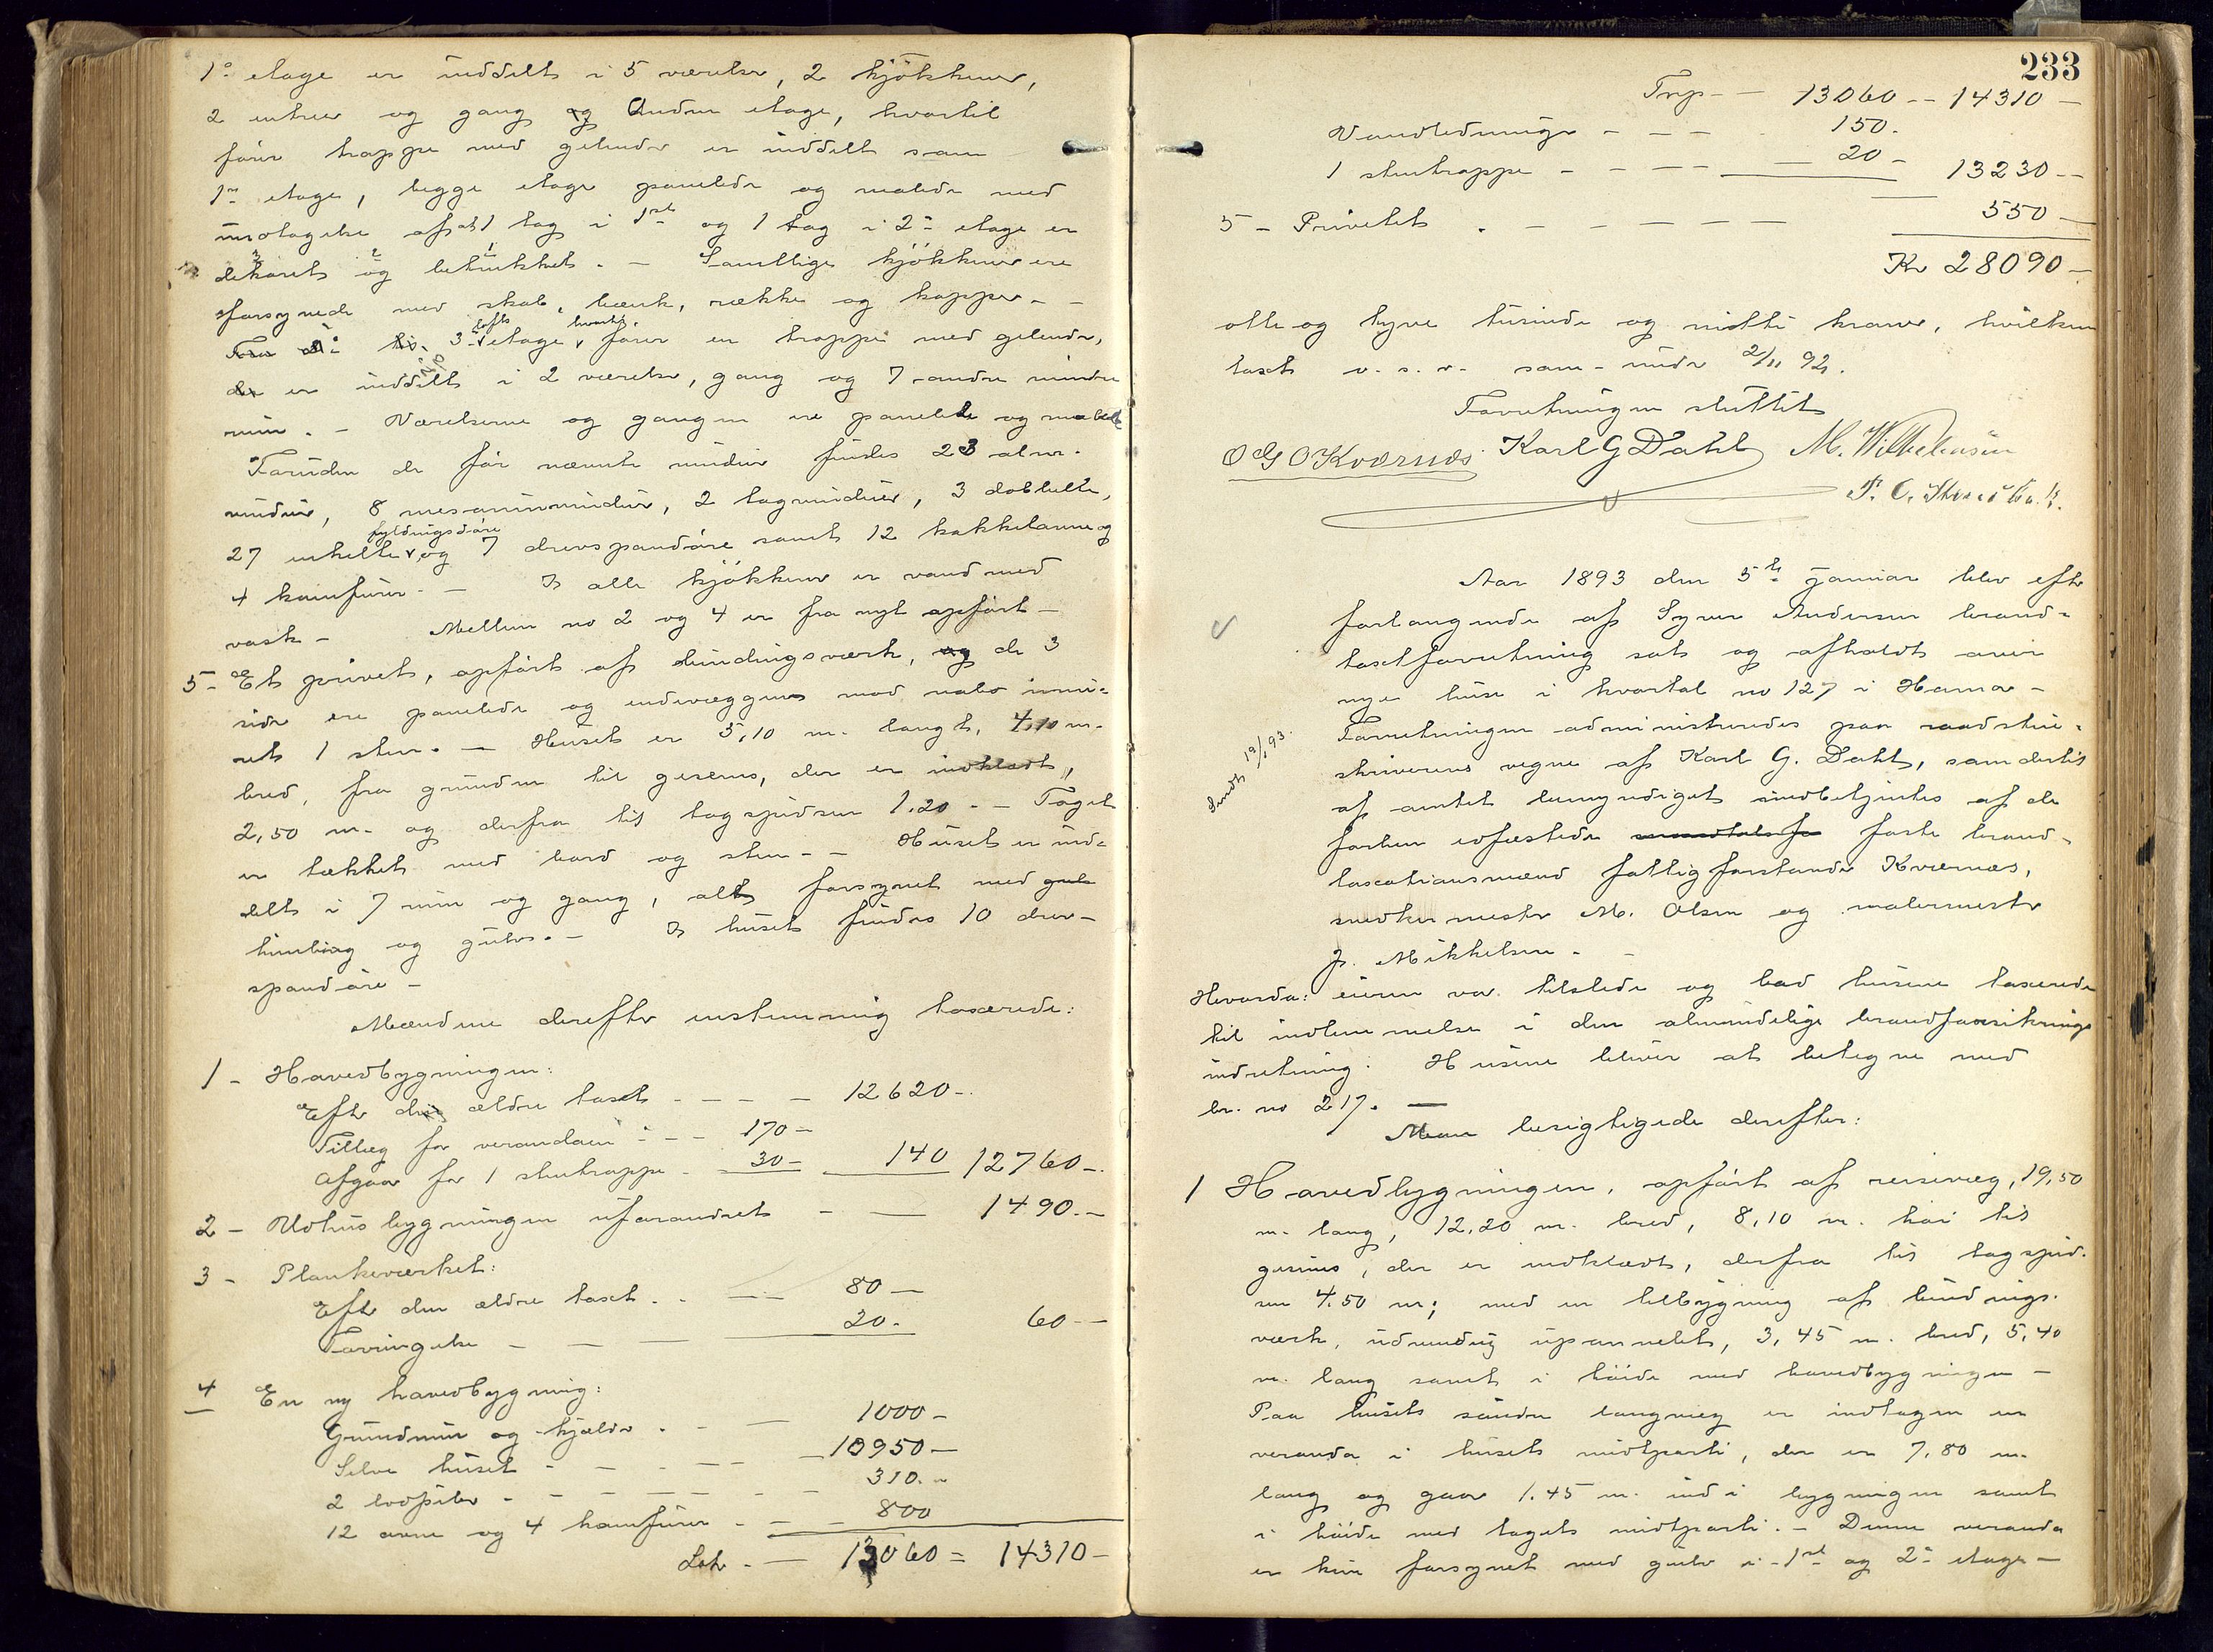 1ˢ etage er inddelt i 5 værelser, 2 kjøkkener,
2 entreer og gang og Anden etage, hvortil
fører trappe med gelender er inddelt som
1ste etage, begge etager panelede og malede med
undtagelse af at 1 tag i 1ste og 1 tag i 2den etage er
dekoret og betrukket. – Samtlige kjøkkener ere
forsynede med skab, bænk, række og kopper. –
Fra til 3. lofts etage, hvortil fører en trappe med gelender,
der er inddelt i 2 værelser, gang og 7 andre mindre
rum. – Værelserne og gangen ere panelede og malede
Foruden de før nævnte vinduer findes 23 alm.
vinduer, 8 mesaninvinduer, 2 tagvinduer, 3 dobbelte,
27 enkelte fyldningsdøre og 7 drevspandøre samt 12 kakkelovne og
4 komfurer. – I alle kjøkkener er vand med
vask – Mellem no 2 og 4 er fra nyt opført –
5 – Et privet, opført af bindingsværk, og de 3
sider ere panelede og endevæggen mod nabo inmu-
ret 1 sten. – Huset er 5,10 m. langt, 4,10 m.
bred, fra grunden til gesems, der er indklædt,
2,50 m. og derfra til tagspidsen 1.20. – Taget
er tækket med bord og sten. – Huset er ind-
delt i 7 rum og gang, alt forsynet med gule
himling og gulv. – I huset findes 10 drev-
spandøre –
Mændene derefter enstemmig taxerede:
1 – Hovedbygningen:
Efter den ældre taxt – – – – 12620 –
Tillæg for verandaen – – – 170 –
Afgaar for 1 stentrappe – 30 – 140 12760 –
2 – Udhusbygningen uforandret – — 1490. –
3 – Plankeværket:
Efter den ældre taxt . . – – 80 –
Forringelse – – – 20. 60 –
4 En ny hovedbygning:
Grundmur og kjælder . – – 1000 –
Selve huset – – – – 10950 –
2 brodpiber – – – – 310. –
12 ovne og 4 komfurer – – – 800
Lat. – — 13060 = 14310 –
233
Trsp – — 13060 – – 14310 –
Vandledninger – – – 150.
1 stentrappe – – – – – 20 – 13230 –
5 – Privetet . – – – – 550 –
Kr 28090 –
otte og tyve tusinde og nitti kroner, hvilken
taxt v. s. v. som – under 2/11 92.
Forretningen sluttet
O G O Kværnes Karl G Dahl M. Wilhelmsen
Aar 1893 den 5te januar blev efter
forlangende af Syver Andersen brand-
taxtforretning sat og afholdt over
nye huse i kvartal no 127 i Hamar –
Forretningen administreredes paa raadstue-
skriverens vegne af Karl G. Dahl, som dertil
af amtet bemyndiget medbetjentes af de
forhen edfæstede faste brand-
taxationsmænd fattigforstander Kværnæs,
snedkermester M. Olsen og malermester
J. Mikkelsen. –
Sendt 19/1 93.
Hvorda: eieren var tilstede og bad husene taxerede
til indlemmelse i den almindelige brandforsikrings
indretning. Husene bliver at betegne med
br. no 217. —
Man besigtigede derefter:
1 Hovedbygningen, opført af reisevæg, 19,50
m. lang, 12,20 m. bred, 8,10 m. høi til
gesims, der er indklædt, derfra til tagspid-
sen 4.50 m; med en tilbygning af bindings-
værk, udvendig upannelet, 3,45 m. bred, 5,40
m. lang samt i høide med hovedbygningen –
Paa husets søndre langvæg er indtagen en
veranda i husets midtparti, der er 7,80 m.
lang og gaar 1.45 m. ind i bygningen samt
i høide med tagets midtparti. – Denne veranda
er kun forsynet med gulv i 1ste og 2den etage –